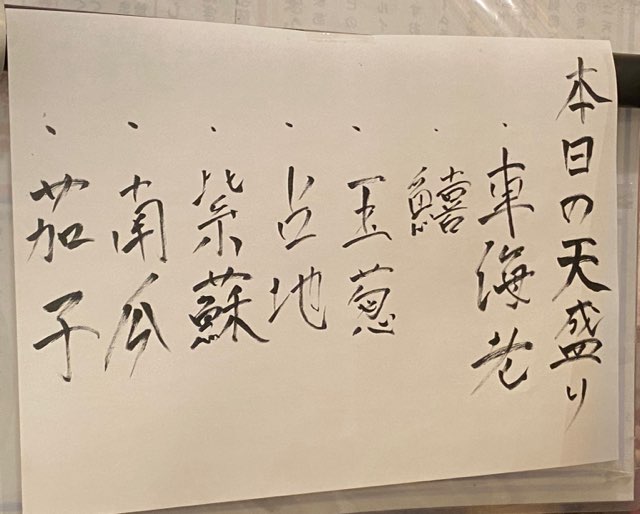 本日の天盛り
、車海老
、鱚
、玉葱
、占地
、紫蘇
、南瓜
、茄子